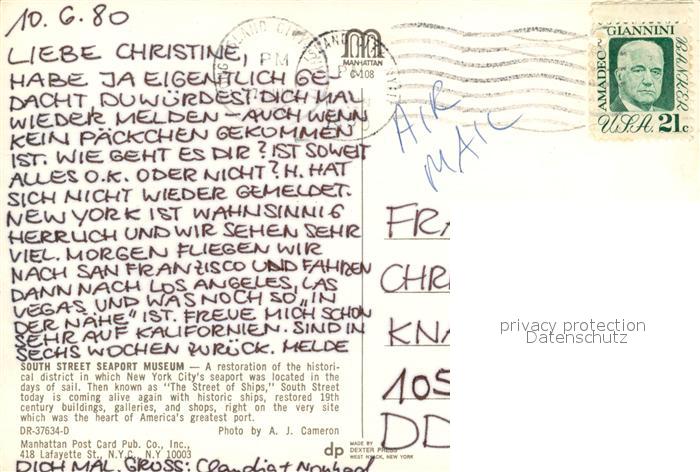 10.6.80
LIEBE CHRISTINE,
HABE JA EIGENTLICH GE
DACHT DU WÜRDEST DICH MAL
WIEDER MELDEN – AUCH WENN
KEIN PÄCKCHEN GEKOMMEN
IST. WIE GEHT ES DIR? IST SOWEIT
ALLES O.K. ODER NICHT? H. HAT
SICH NICHT WIEDER GEMELDET.
NEW YORK IST WAHNSINNIG
HERRLICH UND WIR SEHEN SEHR
VIEL. MORGEN FLIEGEN WIR
NACH SAN FRANZISCO UND FAHREN
DANN NACH LOS ANGELES, LAS
VEGAS UND WAS NOCH SO „IN
DER NÄHE" IST. FREUE MICH SCHON
SEHR AUF KALIFORNIEN. SIND IN
SECHS WOCHEN ZURÜCK. MELDE
SOUTH STREET SEAPORT MUSEUM — A restoration of the histori-
cal district in which New York City's seaport was located in the
days of sail. Then known as "The Street of Ships," South Street
today is coming alive again with historic ships, restored 19th
century buildings, galleries, and shops, right on the very site
which was the heart of America's greatest port.
DR-37634-D Photo by A. J. Cameron
Manhattan Post Card Pub. Co., Inc.,
418 Lafayette St., N.Y.C., N.Y 10003
DICH MAL. GRUSS: Claudia +
dp
MADE BY
DEXTER PRESS
WEST NYACK, NEW YORK
MANHATTAN
6-108
PM
AIR
MAIL
AMADEO P. GIANNINI
BANKER
U.S.A. 21c
FRA
CHRI
KNA
105
DD
privacy protection
Datenschutz